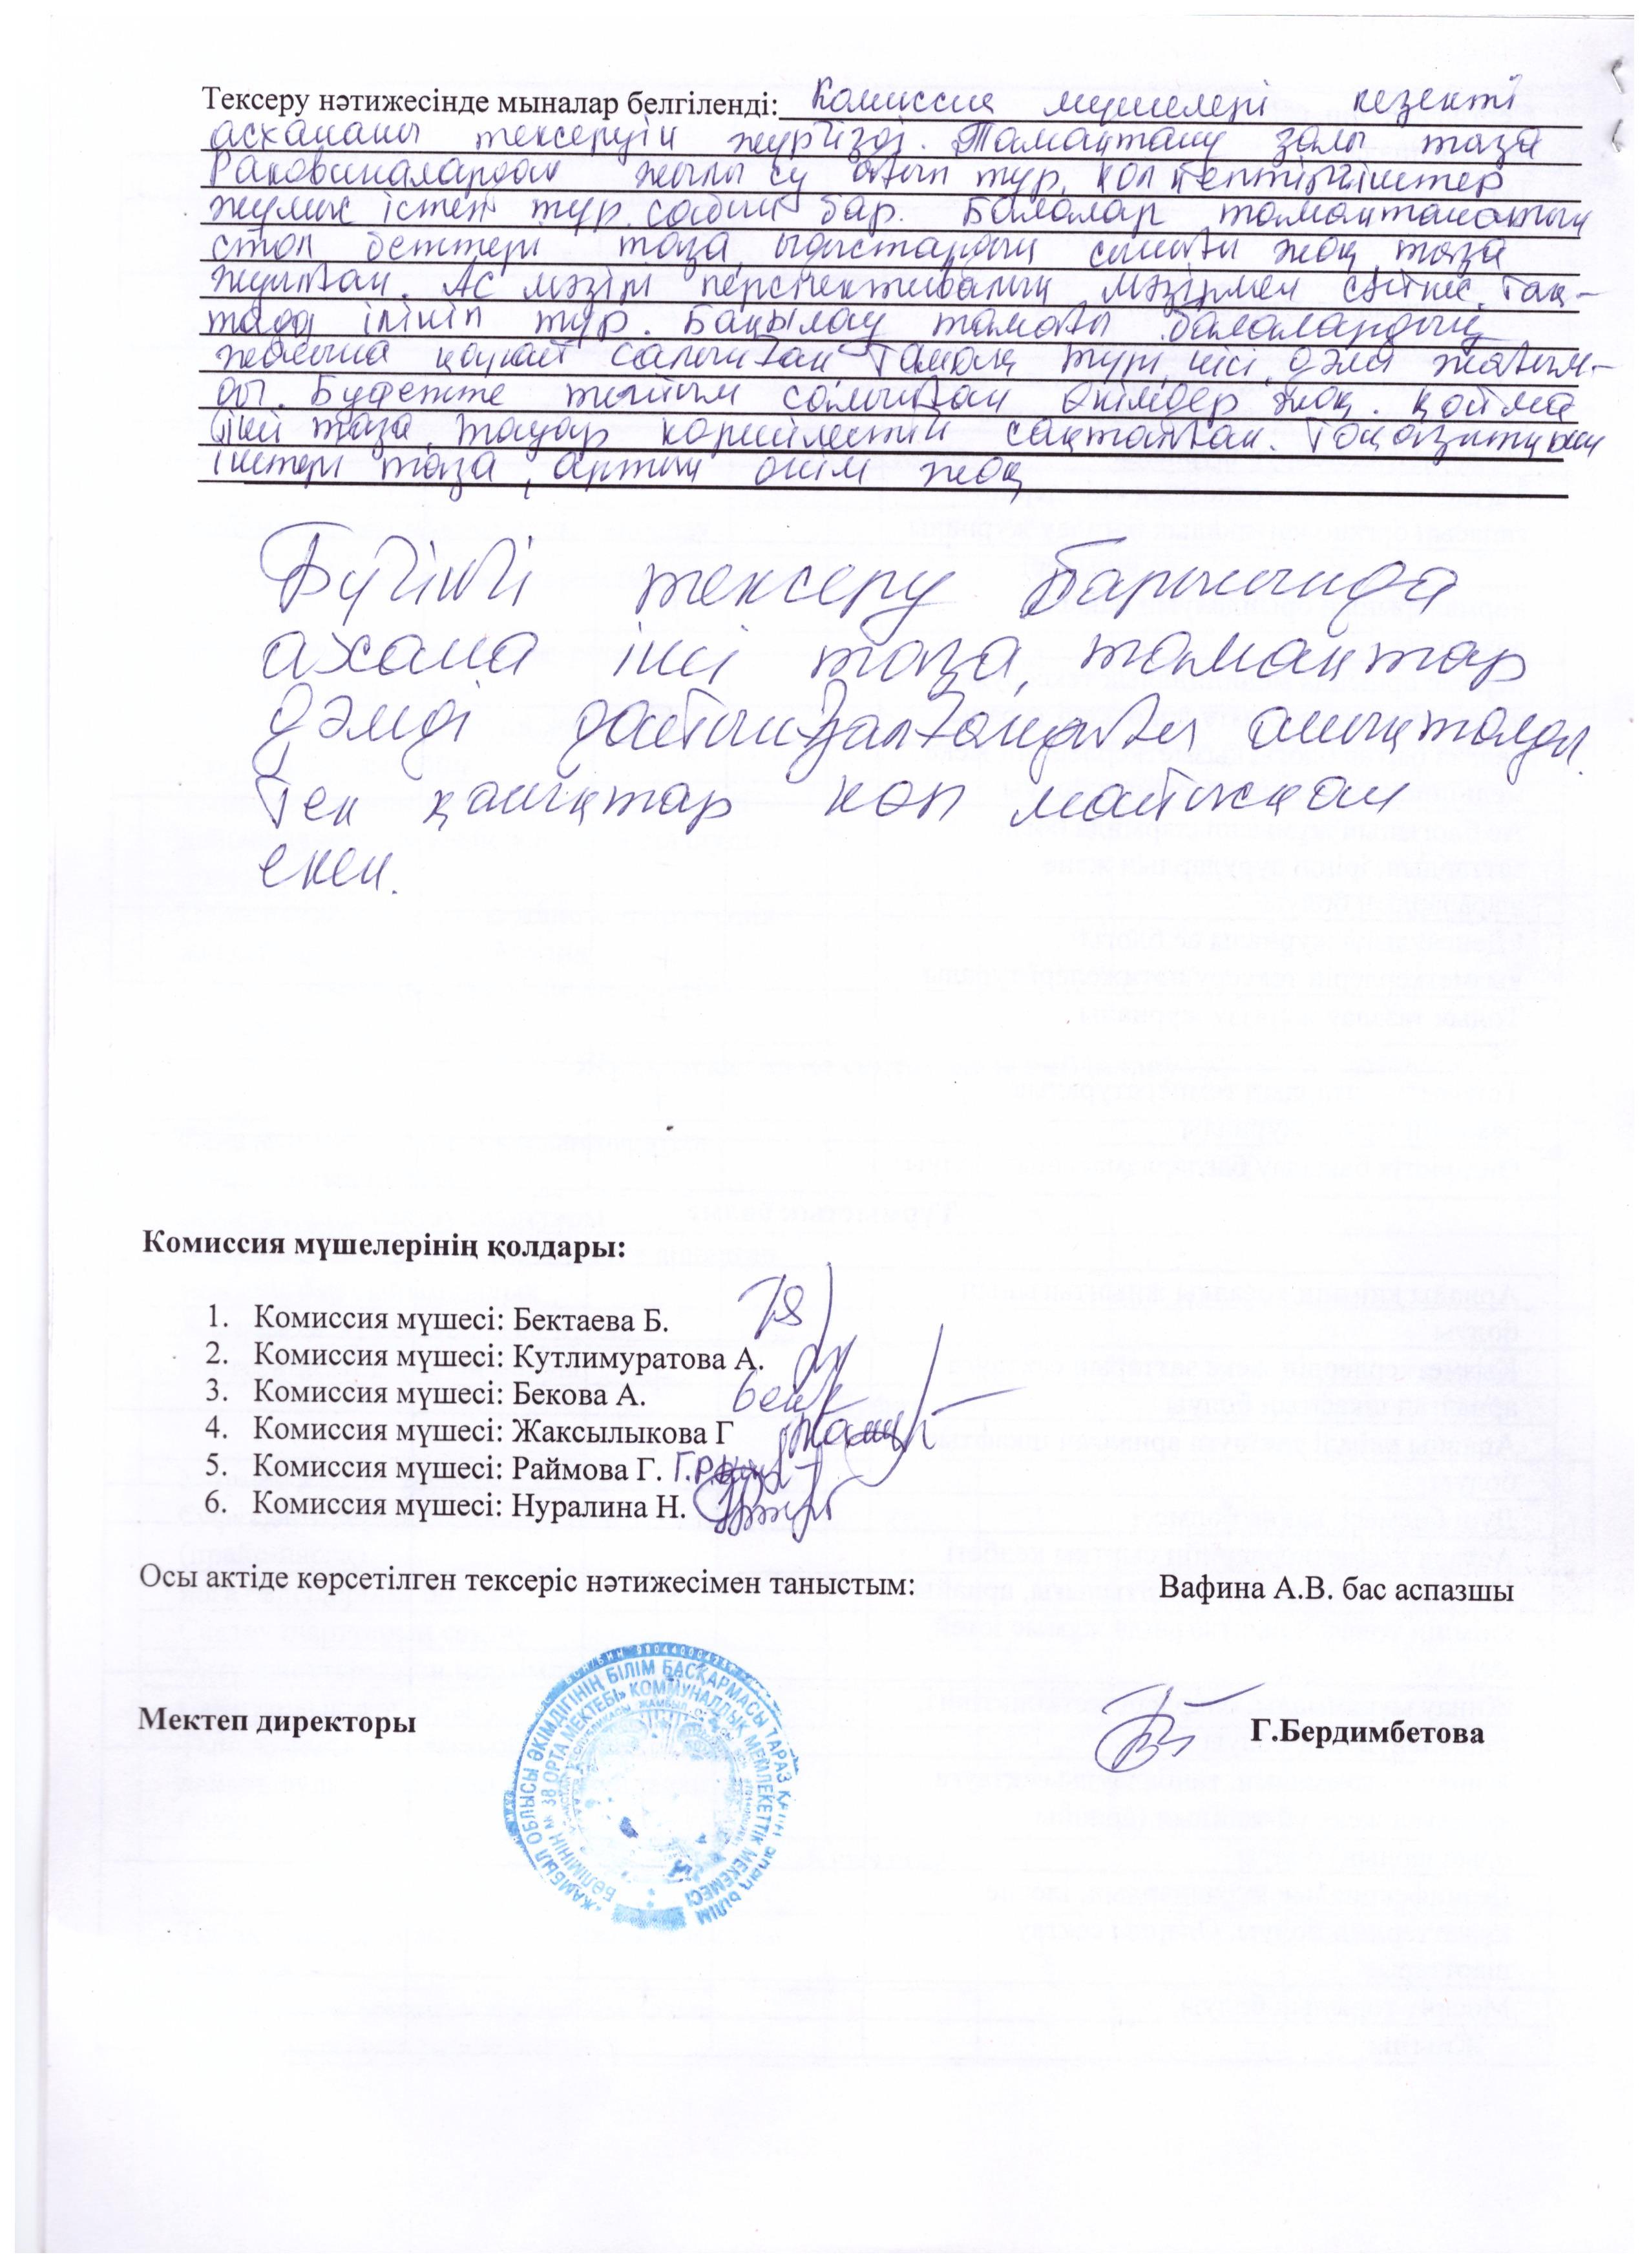 Тексеру нәтижесінде мыналар белгіленді: Комиссия мүшелері кезекті
асхананы тексеруін жүргізді. Тамақтану залы таза
Раковиналардан жылы су ағып тұр, қол кептіргіштер
жұмыс істеп тұр. сабын бар. Балалар тамақтанатын
стол беттері таза, ыдыстардың сынығы жоқ, таза
жуылған. Ас мәзірі перспективалық мәзірмен сәйкес. Тақ-
тада ілініп тұр. Бақылау тамағы балалардың
жасына қарай салынған. Тамақ түрі, иісі, дәмі жағым-
ды. Буфетте тыйым салынған өнімдер жоқ. Қойма
іші таза, тауар көршілестігі сақталған. Тоңазытқыш
іштері таза, артық өнім жоқ
Бүгінгі тексеру барысында
асхана іші таза, тамақтар
дәмді дайындалғандығы анықталды.
Тек қасықтар көп майысқан
екен.
Комиссия мүшелерінің қолдары:
1. Комиссия мүшесі: Бектаева Б.
2. Комиссия мүшесі: Кутлимуратова А.
3. Комиссия мүшесі: Бекова А.
4. Комиссия мүшесі: Жаксылыкова Г
5. Комиссия мүшесі: Раймова Г.
6. Комиссия мүшесі: Нуралина Н.
Осы актіде көрсетілген тексеріс нәтижесімен таныстым: Вафина А.В. бас аспазшы
Мектеп директоры Г.Бердимбетова
«ЖАМБЫЛ ОБЛЫСЫ ӘКІМДІГІНІҢ БІЛІМ БАСҚАРМАСЫ ТАРАЗ ҚАЛАСЫНЫҢ БІЛІМ
БӨЛІМІНІҢ № 38 ОРТА МЕКТЕБІ» КОММУНАЛДЫҚ МЕМЛЕКЕТТІК МЕКЕМЕСІ